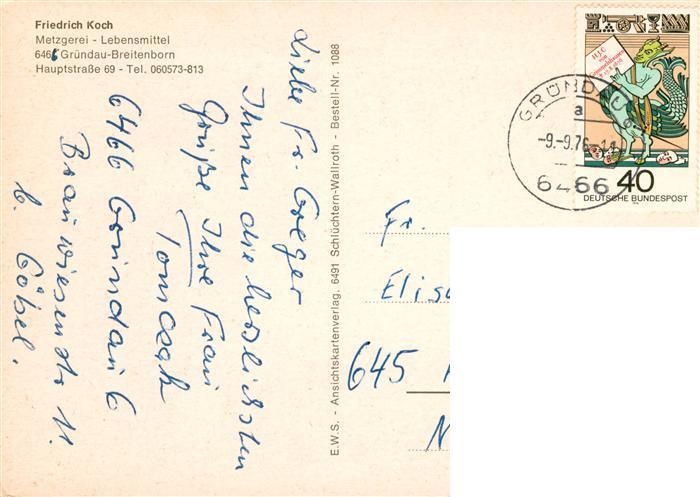 Friedrich Koch
Metzgerei - Lebensmittel
6466 Gründau-Breitenborn
Hauptstraße 69 - Tel. 060573-813
Liebe Fr. Greger
Ihnen die herzlichsten
Grüße Ihre Frau
6466 Gründau 6
Göbel.
E.W.S. - Ansichtskartenverlag. 6491 Schlüchtern-Wallroth - Bestell-Nr. 1088
GRÜNDAU
a
-9.-9.76
6466
40
DEUTSCHE BUNDESPOST
Fr.
645